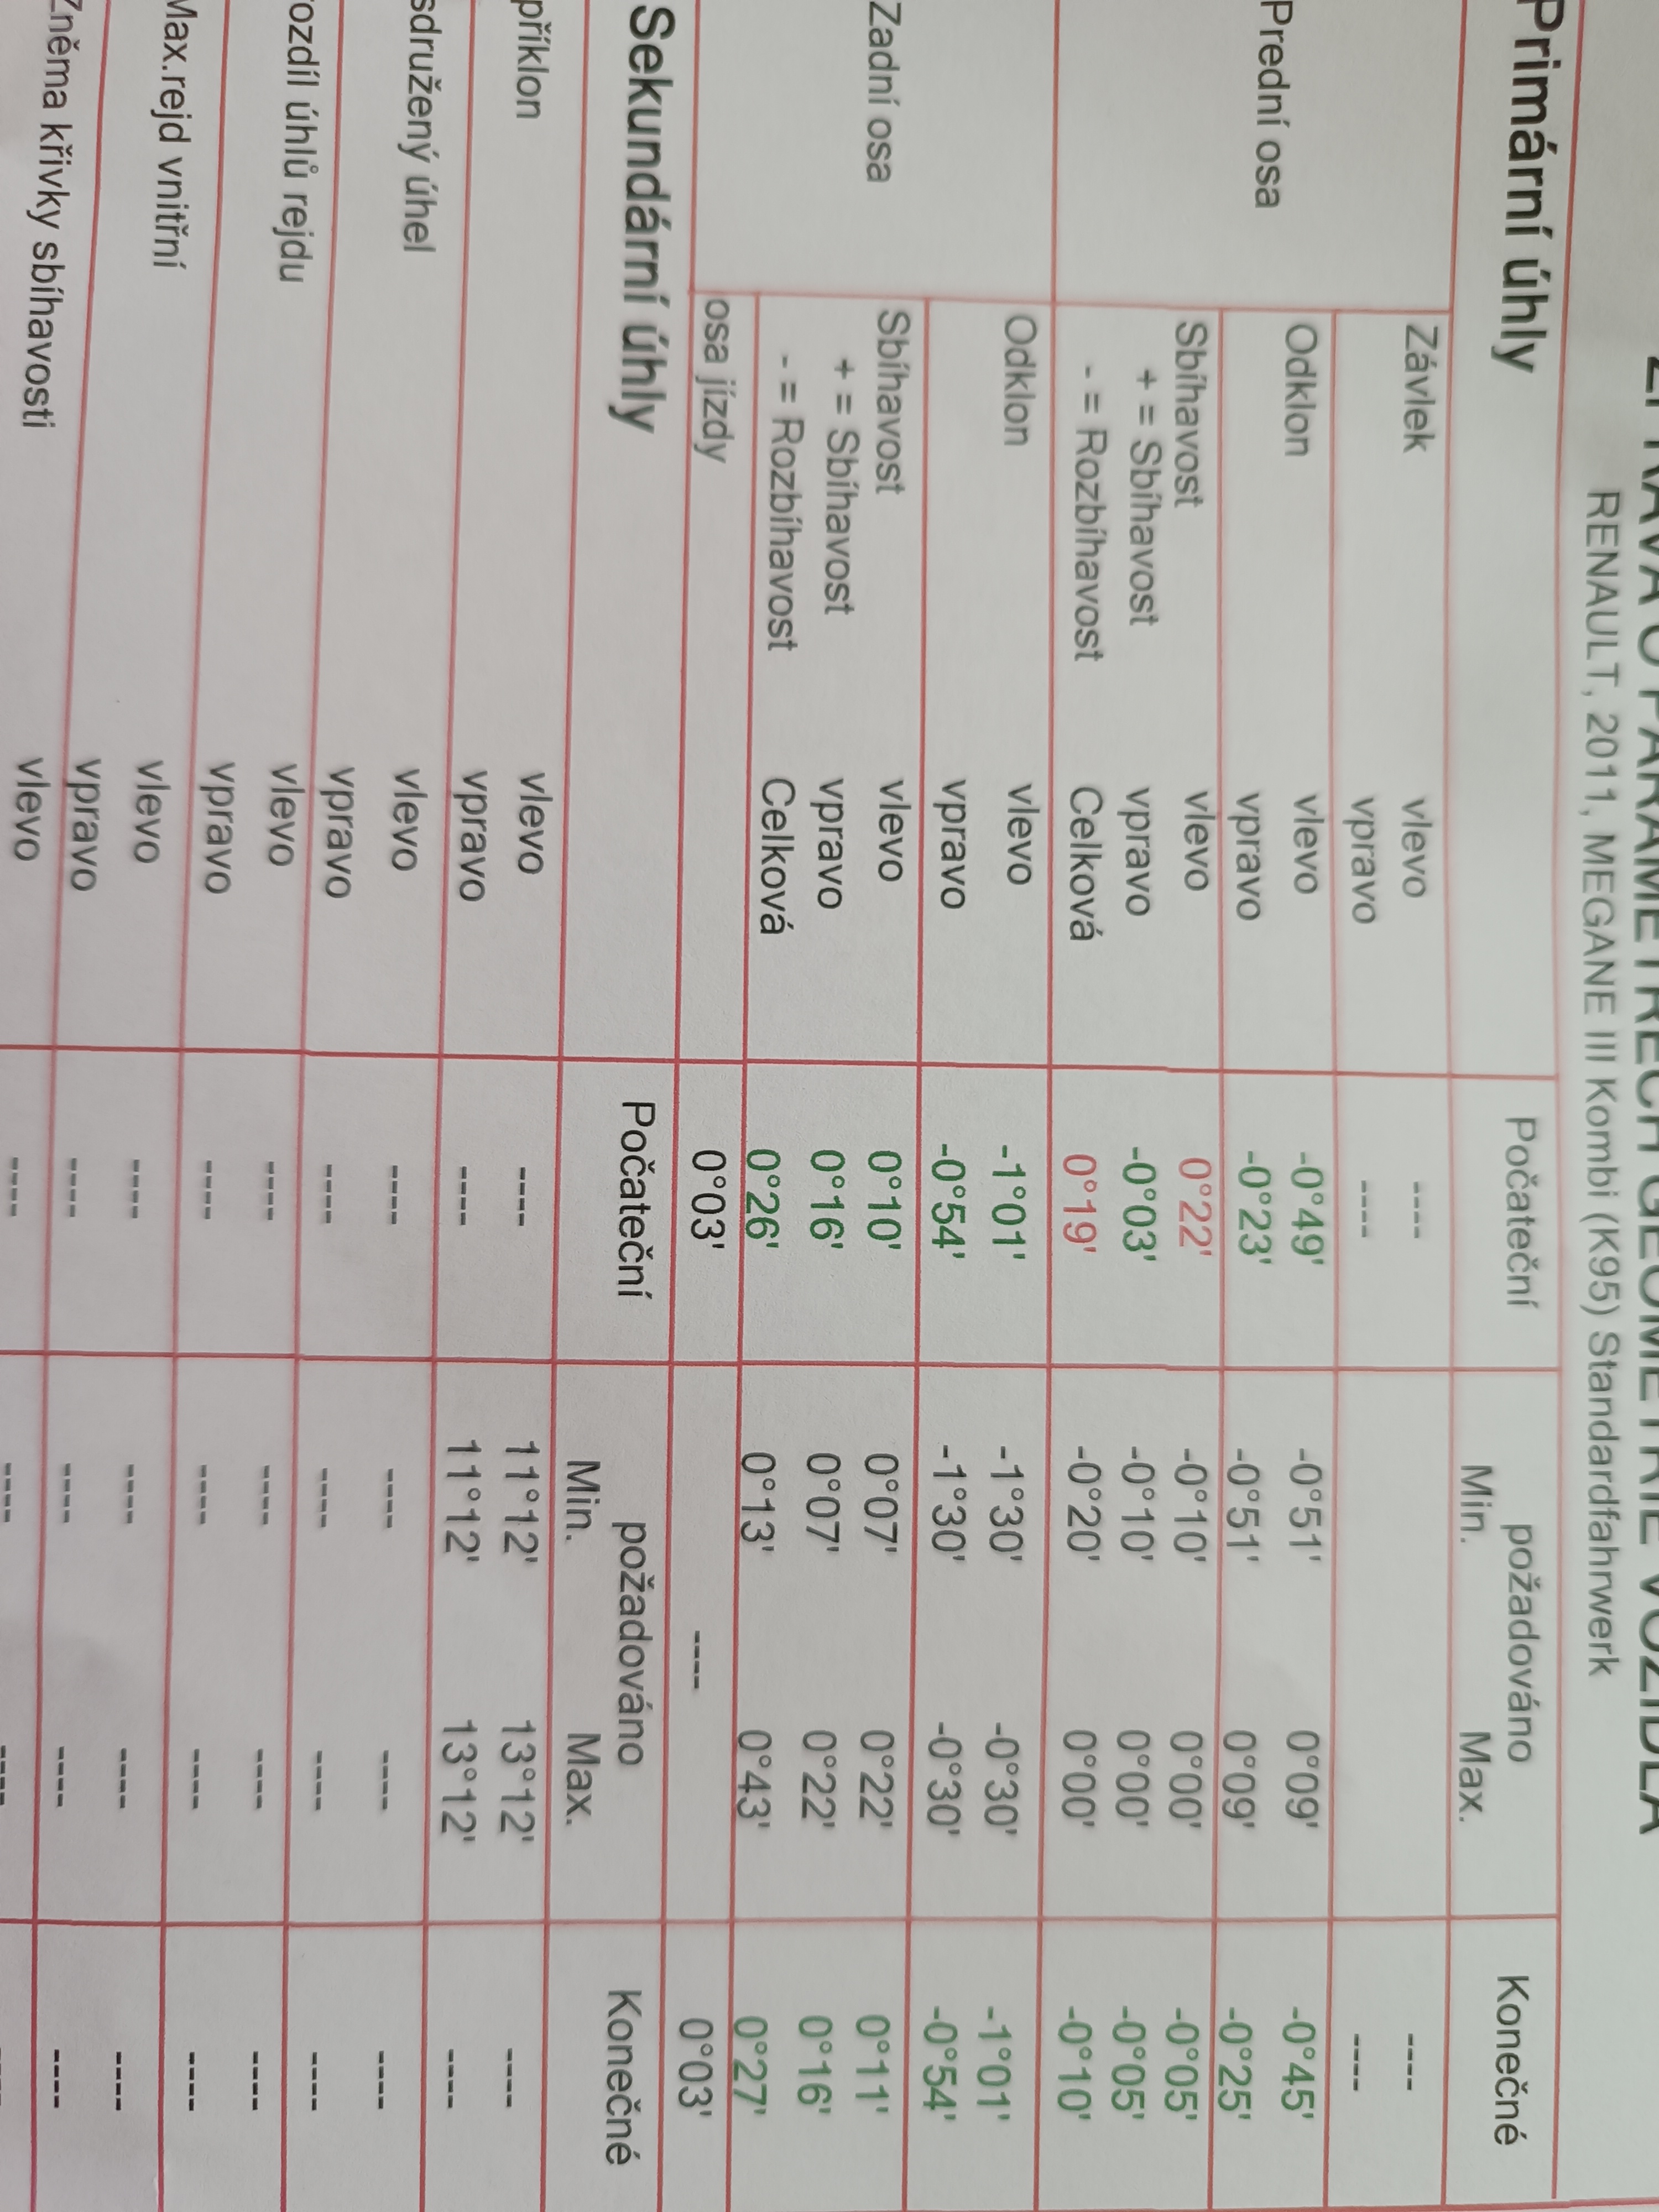 ZPRÁVA O PARAMETRECH GEOMETRIE VOZIDLA
RENAULT, 2011, MEGANE III Kombi (K95) Standardfahrwerk
Primární úhly Počateční požadováno Konečné
Min. Max.
Závlek vlevo ---- ----
vpravo ---- ----
Prední osa Odklon vlevo -0°49' -0°51' 0°09' -0°45'
vpravo -0°23' -0°51' 0°09' -0°25'
Sbíhavost vlevo 0°22' -0°10' 0°00' -0°05'
+ = Sbíhavost vpravo -0°03' -0°10' 0°00' -0°05'
- = Rozbíhavost Celková 0°19' -0°20' 0°00' -0°10'
Odklon vlevo -1°01' -1°30' -0°30' -1°01'
vpravo -0°54' -1°30' -0°30' -0°54'
Zadní osa Sbíhavost vlevo 0°10' 0°07' 0°22' 0°11'
+ = Sbíhavost vpravo 0°16' 0°07' 0°22' 0°16'
- = Rozbíhavost Celková 0°26' 0°13' 0°43' 0°27'
osa jízdy 0°03' ---- 0°03'
Sekundární úhly Počateční požadováno Konečné
Min. Max.
příklon vlevo ---- 11°12' 13°12' ----
vpravo ---- 11°12' 13°12' ----
sdružený úhel vlevo ---- ---- ---- ----
vpravo ---- ---- ---- ----
rozdíl úhlů rejdu vlevo ---- ---- ---- ----
vpravo ---- ---- ---- ----
Max.rejd vnitřní vlevo ---- ---- ---- ----
vpravo ---- ---- ---- ----
Změma křivky sbíhavosti vlevo ---- ---- ---- ----